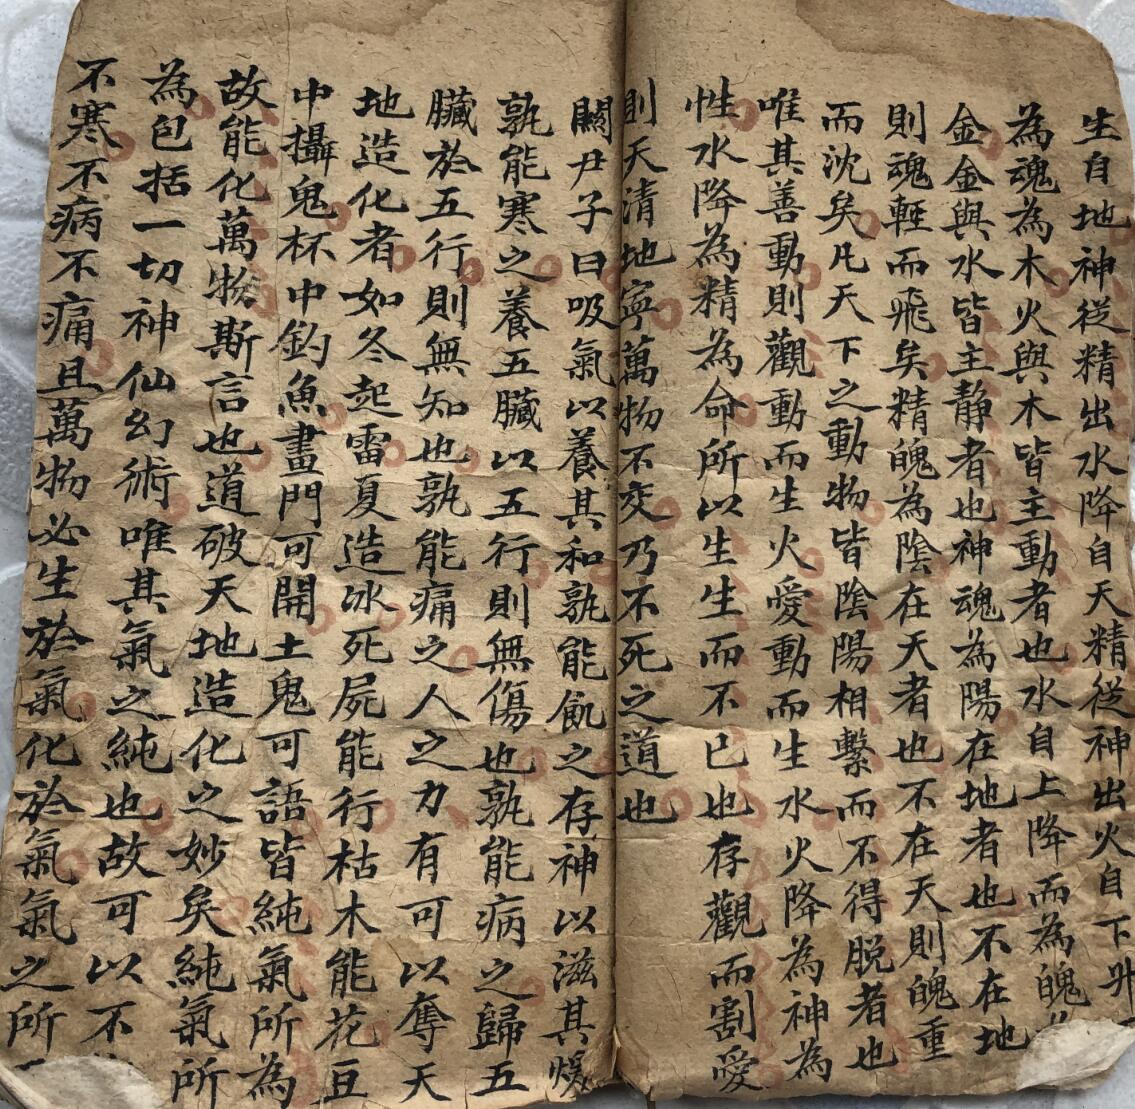 生自地神従精出水降自天精従神出火自下升
為魂為木火與木皆主動者也水自上降而為魄
金金與水皆主静者也神魂為陽在地者也不在地
則魂輕而飛矣精魄為陰在天者也不在天則魄重
而沈矣凡天下之動物皆陰陽相繫而不得脱者也
唯其善動則觀動而生火愛動而生水火降為神為
性水降為精為命所以生生而不已也存觀而割愛
則天清地寧萬物不交乃不死之道也
關尹子曰吸氣以養其和孰能飢之存神以滋其煖
孰能寒之養五臟以五行則無傷也孰能病之歸五
臟於五行則無知也孰能痛之人之力有可以奪天
地造化者如冬起雷夏造冰死屍能行枯木能花豆
中攝鬼杯中釣魚畫門可開土鬼可語皆純氣所為
故能化萬物斯言也道破天地造化之妙矣純氣所
為包括一切神仙幻術唯其氣之純也故可以不
不寒不病不痛且萬物必生於氣化於氣氣之所